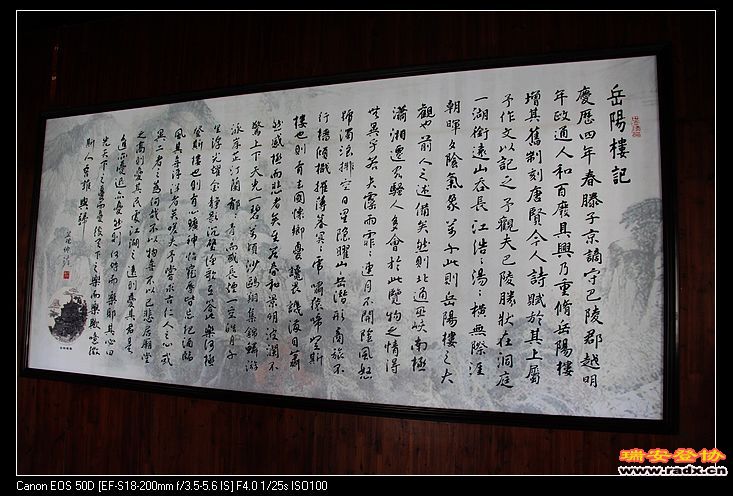 岳陽樓記
慶歷四年春滕子京謫守巴陵郡越明
年政通人和百廢具興乃重脩岳陽樓
增其舊制刻唐賢今人詩賦於其上屬
予作文以記之予觀夫巴陵勝狀在洞庭
一湖銜遠山吞長江浩〻湯〻橫無際涯
朝暉夕陰氣象萬千此則岳陽樓之大
觀也前人之述備矣然則北通巫峽南極
瀟湘遷客騷人多會於此覽物之情得
無異乎若夫霪雨霏〻連月不開陰風怒
號濁浪排空日星隱曜山岳潛形商旅不
行檣傾楫摧薄暮冥〻虎嘯猿啼登斯
樓也則有去國懷鄉憂讒畏譏滿目蕭
然感極而悲者矣至若春和景明波瀾不
驚上下天光一碧萬頃沙鷗翔集錦鱗游
泳岸芷汀蘭郁〻青〻而或長煙一空皓月千
里浮光耀金靜影沉璧漁歌互答此樂何極
登斯樓也則有心曠神怡寵辱皆忘把酒臨
風其喜洋洋者矣嗟夫予嘗求古仁人之心或
異二者之為何哉不以物喜不以己悲居廟堂
之高則憂其民處江湖之遠則憂其君是
進亦憂退亦憂然則何時而樂耶其必曰
先天下之憂而憂後天下之樂而樂歟噫微
斯人吾誰與歸
范仲淹
瑞安登协
www.radx.cn
Canon EOS 50D [EF-S18-200mm f/3.5-5.6 IS] F4.0 1/25s ISO100